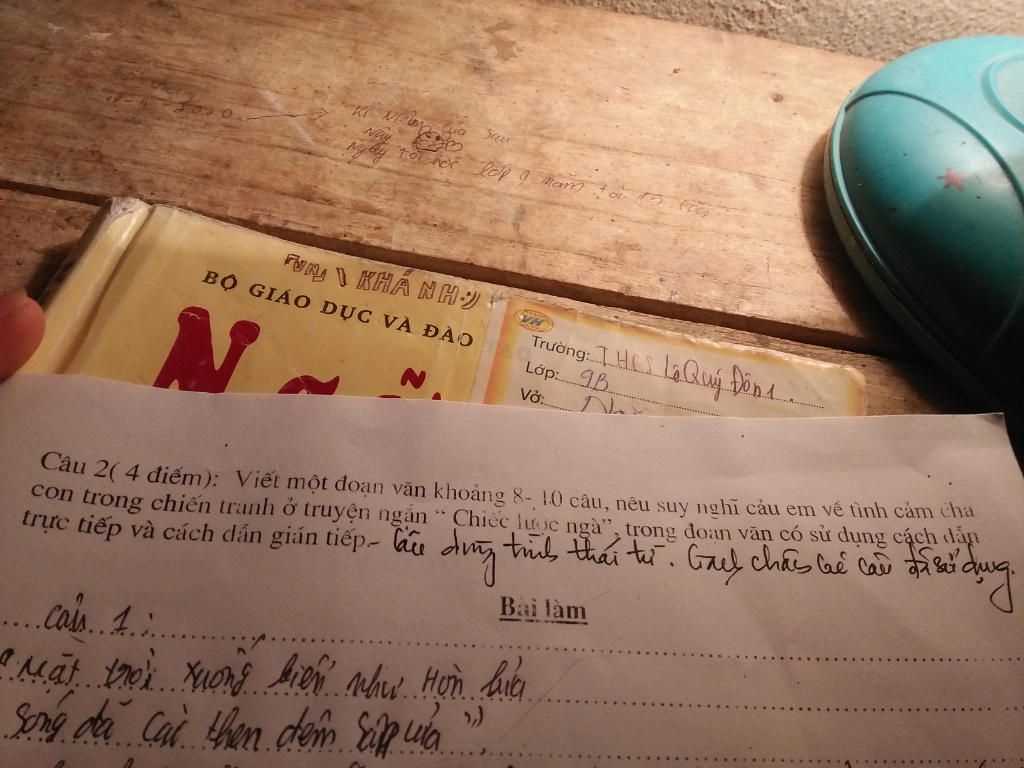 Kỉ niệm của sau
này
ngày tôi học lớp 9 năm tôi 15 tuổi
KHÁNH
BỘ GIÁO DỤC VÀ ĐÀO
TẠO
VH
Trường: THCS Lê Quý Đôn 1.
Lớp: 9B
Vở:
Câu 2( 4 điểm): Viết một đoạn văn khoảng 8- 10 câu, nêu suy nghĩ cảu em về tình cảm cha
con trong chiến tranh ở truyện ngắn “ Chiếc lược ngà”, trong đoạn văn có sử dụng cách dẫn
trực tiếp và cách dẫn gián tiếp. Câu dùng tình thái từ. Gạch chân các câu đã sử dụng.
Bài làm
Câu 1:
"Mặt trời xuống biển như Hòn lửa
Sóng đã cài then đêm sập cửa"